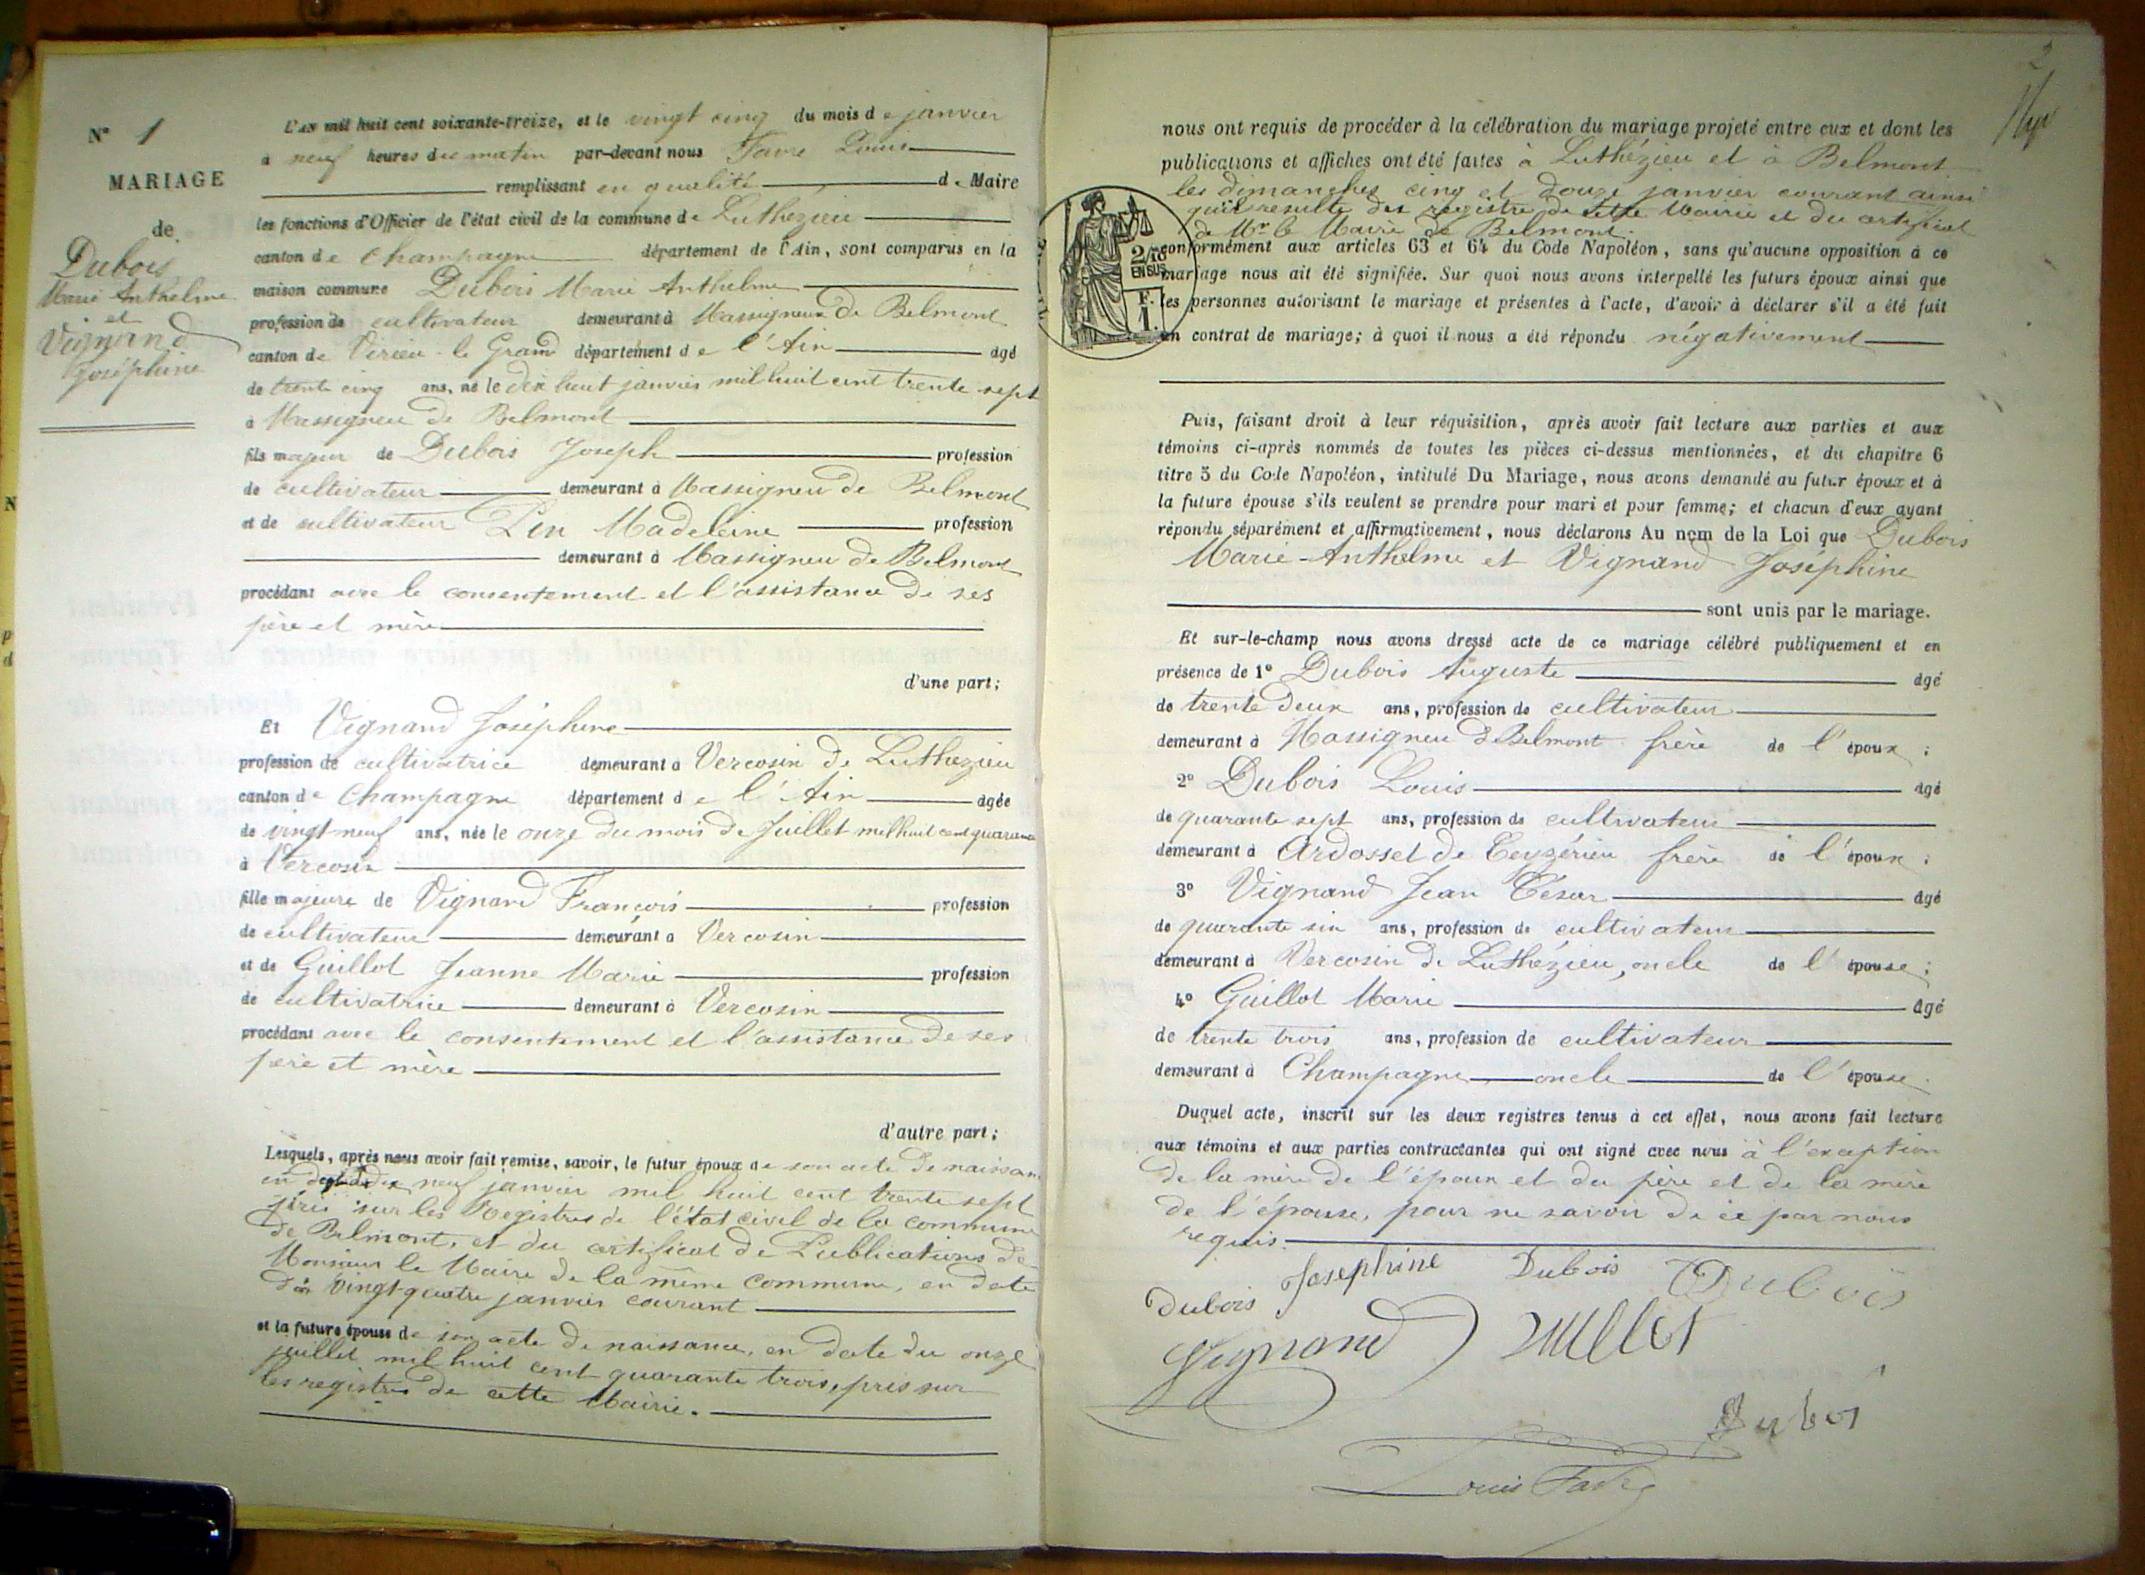 N° 1
MARIAGE
de
Dubois
Marie Anthelme
et
Vignand
Joséphine
L'an mil huit cent soixante-treize, et le vingt cinq du mois de janvier
à neuf heures du matin par-devant nous Favre Louis
remplissant en qualité de Maire
les fonctions d'Officier de l'état civil de la commune de Luthézieu
canton de Champagne département de l'Ain, sont comparus en la
maison commune Dubois Marie Anthelme
profession de cultivateur demeurant à Massigneu de Belmont
canton de Virieu-le Grand département de l'Ain âgé
de trente cinq ans, né le dix huit janvier mil huit cent trente sept
à Massigneu de Belmont
fils majeur de Dubois Joseph profession
de cultivateur demeurant à Massigneu de Belmont
et de cultivateur Lin Madeleine profession
demeurant à Massigneu de Belmont
procédant avec le consentement et l'assistance de ses
père et mère
d'une part;
Et Vignand Joséphine
profession de cultivatrice demeurant à Vercosin de Luthézieu
canton de Champagne département de l'Ain âgée
de vingt neuf ans, née le onze du mois de Juillet mil huit cent quarante
à Vercosin
fille majeure de Vignand François profession
de cultivateur demeurant à Vercosin
et de Guillot Jeanne Marie profession
de cultivatrice demeurant à Vercosin
procédant avec le consentement et l'assistance de ses
père et mère
d'autre part;
Lesquels, après nous avoir fait remise, savoir, le futur époux de son acte de naissance
en date du neuf janvier mil huit cent trente sept
pris sur les Registres de l'état civil de la commune
de Belmont, et du certificat de Publications de
Monsieur le Maire de la même commune, en date
du vingt-quatre janvier courant
et la future épouse de son acte de naissance, en date du onze
juillet mil huit cent quarante trois, pris sur
les registres de cette Mairie.
2
nous ont requis de procéder à la célébration du mariage projeté entre eux et dont les
publications et affiches ont été faites à Luthézieu et à Belmont
les dimanches cinq et douze janvier courant ainsi
qu'il résulte des registre de cette Mairie et du certificat
de Mr le Maire de Belmont.
conformément aux articles 63 et 64 du Code Napoléon, sans qu'aucune opposition à ce
mariage nous ait été signifiée. Sur quoi nous avons interpellé les futurs époux ainsi que
les personnes autorisant le mariage et présentes à l'acte, d'avoir à déclarer s'il a été fait
un contrat de mariage; à quoi il nous a été répondu négativement
2/10
EN SUS
F.
1.
Puis, faisant droit à leur réquisition, après avoir fait lecture aux parties et aux
témoins ci-après nommés de toutes les pièces ci-dessus mentionnées, et du chapitre 6
titre 5 du Code Napoléon, intitulé Du Mariage, nous avons demandé au futur époux et à
la future épouse s'ils veulent se prendre pour mari et pour femme; et chacun d'eux ayant
répondu séparément et affirmativement, nous déclarons Au nom de la Loi que Dubois
Marie-Anthelme et Vignand Joséphine
sont unis par le mariage.
Et sur-le-champ nous avons dressé acte de ce mariage célébré publiquement et en
présence de 1° Dubois Auguste âgé
de trente deux ans, profession de cultivateur
demeurant à Massigneu de Belmont frère de l'époux;
2° Dubois Louis âgé
de quarante sept ans, profession de cultivateur
demeurant à Ardosset de Ceyzérieu frère de l'époux;
3° Vignand Jean César âgé
de quarante six ans, profession de cultivateur
demeurant à Vercosin de Luthézieu, oncle de l'épouse;
4° Guillot Marie âgé
de trente trois ans, profession de cultivateur
demeurant à Champagne oncle de l'épouse.
Duquel acte, inscrit sur les deux registres tenus à cet effet, nous avons fait lecture
aux témoins et aux parties contractantes qui ont signé avec nous à l'exception
de la mère de l'époux et du père et de la mère
de l'épouse, pour ne savoir de ce par nous
requis.
Josephine Dubois Dubois
Dubois
Vignand Guillot
Dubois
Louis Favre